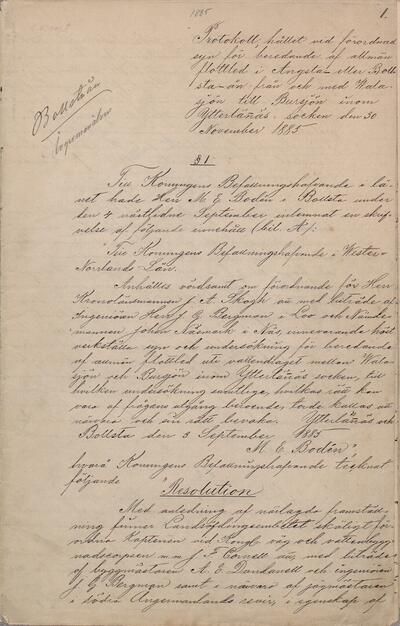 1885
1.
Protokoll, hållet vid förordnad
syn för beredande af allmän
flottled i Angsta- eller Boll-
sta-ån från och med Wala-
sjön till Bursjön inom
Ytterlännäs socken den 30
November 1885
Bollstaån
Ångermanelfven
§ 1
Till Konungens Befallningshafvande i lä-
net hade Herr M E Bodén i Bollsta under
den 4 nästlidne September inlemnat en skrif-
velse af följande innehåll (bil. A):
"Till Konungens Befallningshafvande i Wester-
Norrlands Län.
Anhålles vördsamt om förordnande för Herr
Kronolänsmannen J A Skogh att med biträde af
Ingeniören Herr J G Bergman i Loo och Nämde-
mannen Johan Näsmark i Näs, innevarande höst
verkställa syn och undersökning för beredande
af allmän flottled uti vattendraget mellan Wala-
sjön och Bursjön inom Ytterlännäs socken, till
hvilken undersökning samtlige, hvilkas rätt kan
vara af frågans utgång beroende, torde kallas att
närvara och sin rätt bevaka. Ytterlännäs och
Bollsta den 3 September 1885
M. E. Bodén",
hvarå Konungens Befallningshafvande tecknat
följande
"Resolution
Med anledning af närlagda framställ-
ning finner Landshöfdingeembetet skäligt för-
ordna Kaptenen vid Kongl. väg och vattenbygg-
nadscorpsen m m J. F. Cornell att, med biträde
af byggmästaren A. E. Dandanell och ingeniören
J G Bergman samt i närvaro af jägmästaren
i Södra Ångermanlands revir, i egenskap af